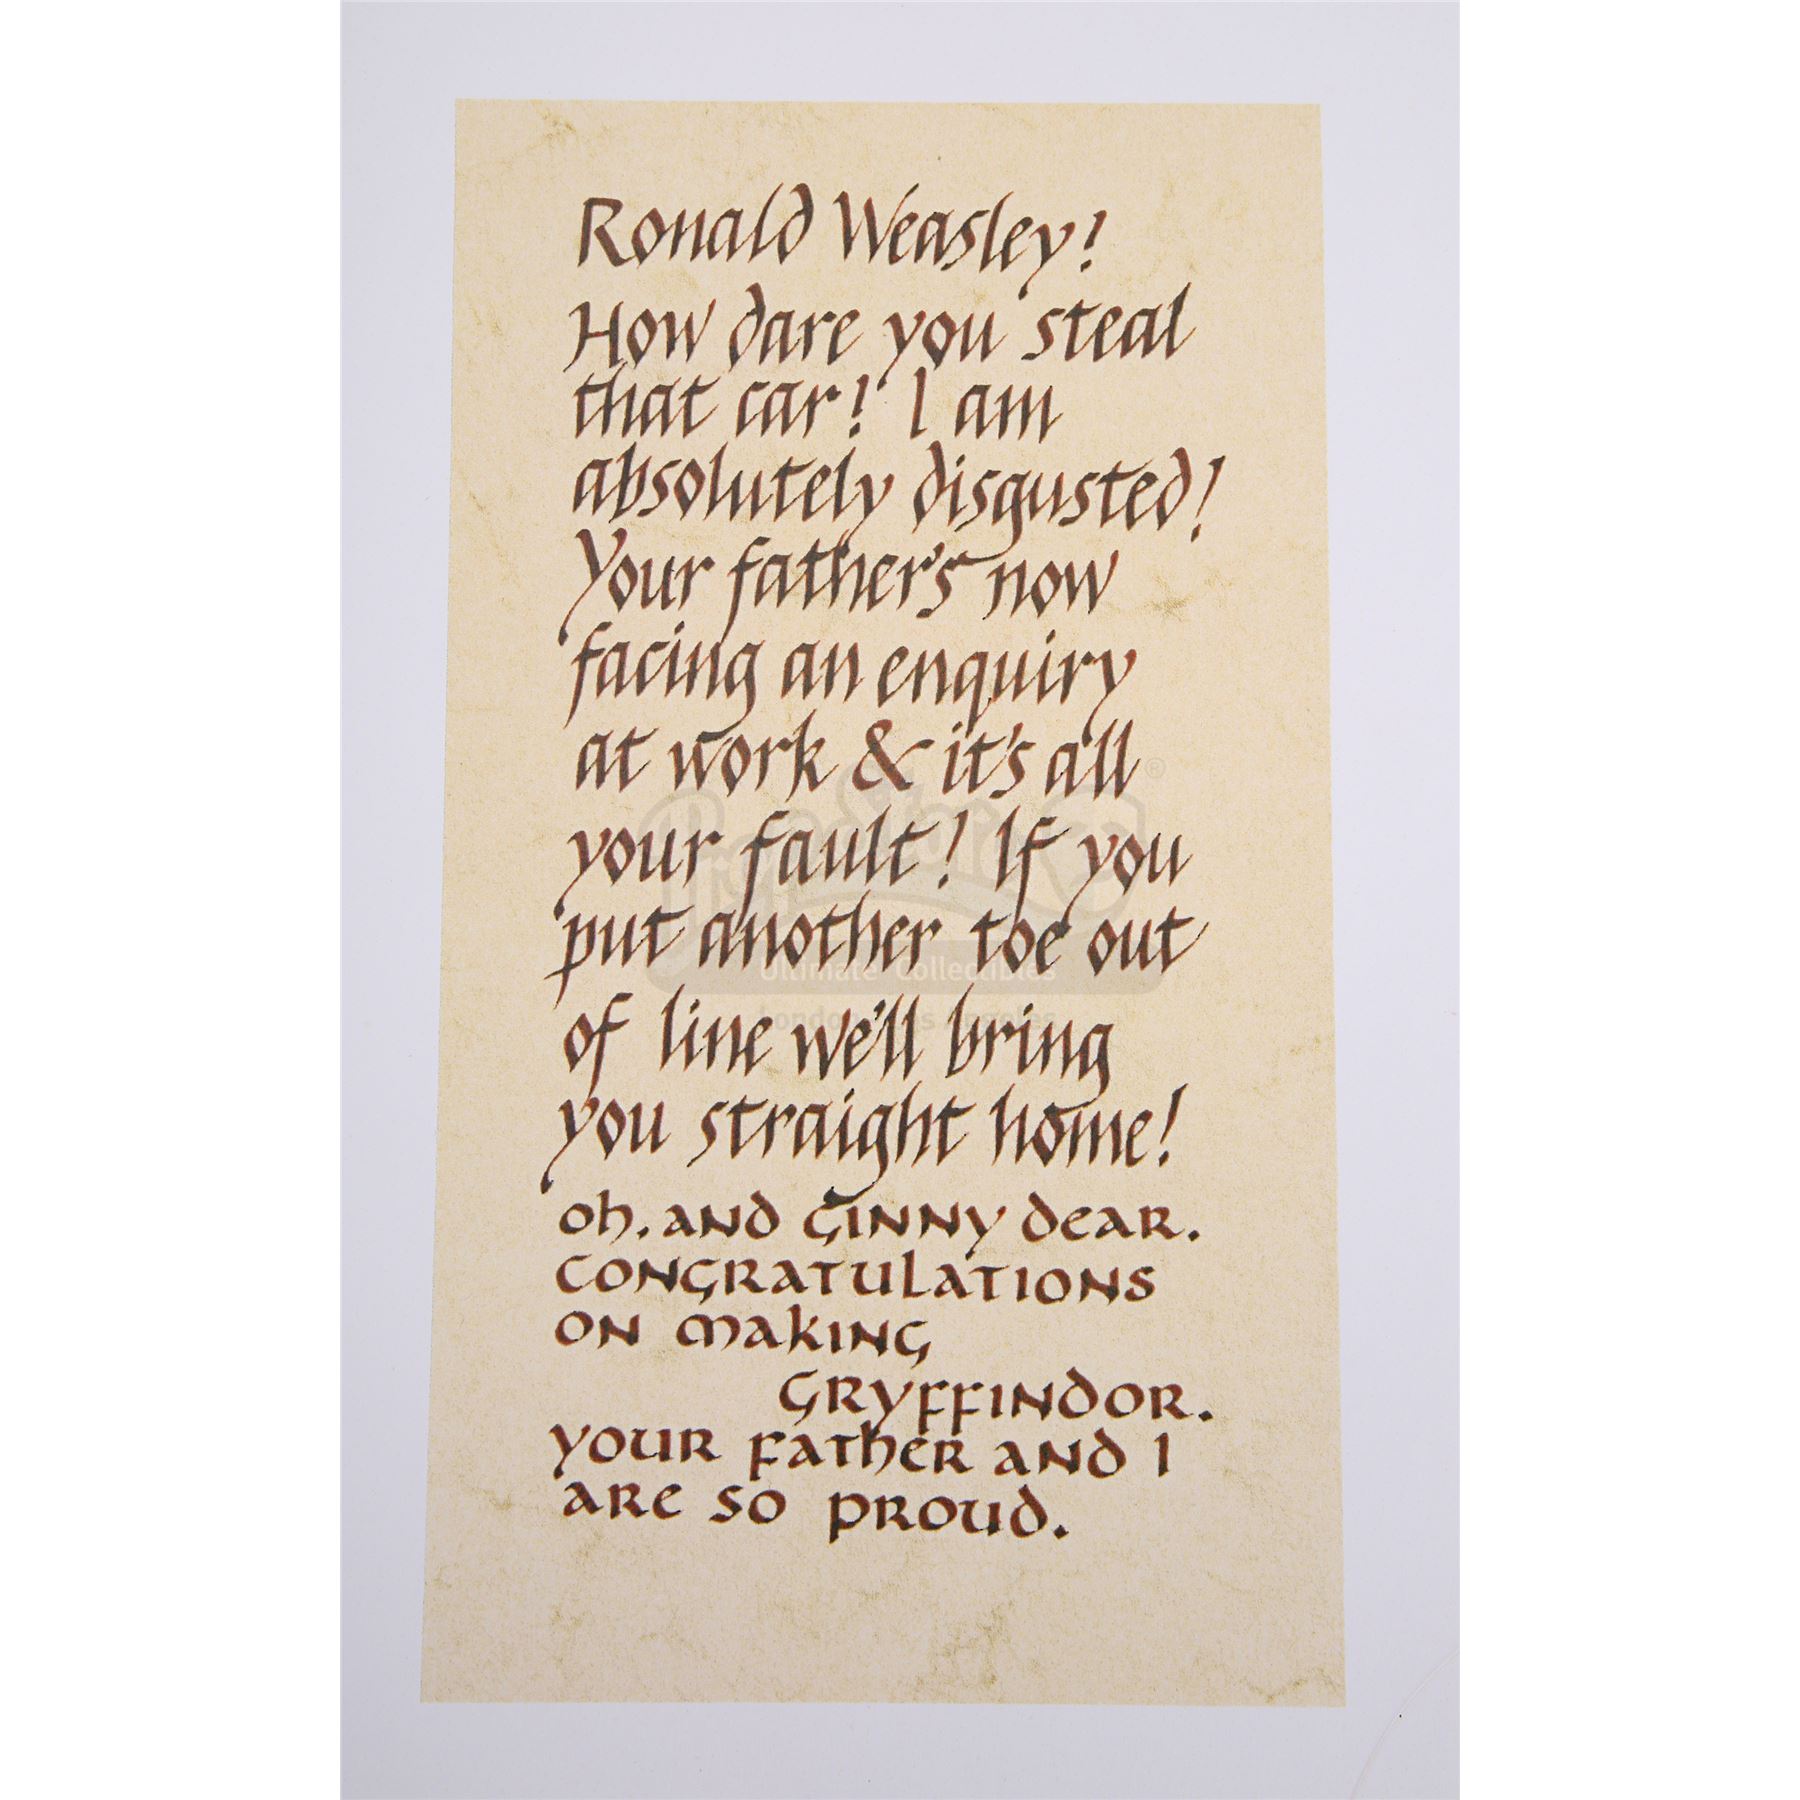 Ronald Weasley!
How dare you steal
that car! I am
absolutely disgusted!
Your father's now
facing an enquiry
at work & it's all
your fault! If you
put another toe out
of line we'll bring
you straight home!
oh. and Ginny dear.
congratulations
on making
Gryffindor.
your father and I
are so proud.
PropStore
®
Ultimate Collectibles
London Los Angeles